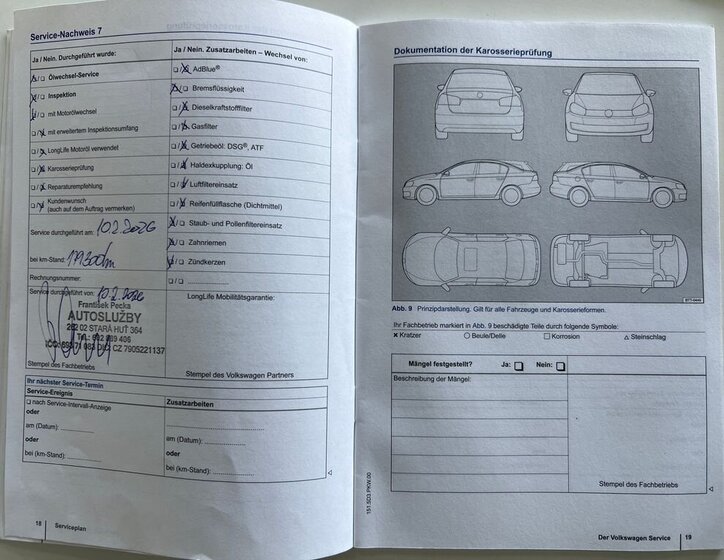 Service-Nachweis 7
Ja / Nein. Durchgeführt wurde:
☒/☐ Ölwechsel-Service
☒/☐ Inspektion
☒/☐ mit Motorölwechsel
☐/☒ mit erweitertem Inspektionsumfang
☐/☒ LongLife Motoröl verwendet
☐/☒ Karosserieprüfung
☐/☒ Reparaturempfehlung
☐/☒ Kundenwunsch
(auch auf dem Auftrag vermerken)
Service durchgeführt am:
bei km-Stand:
Rechnungsnummer:
Service durchgeführt von:
František Pecka
AUTOSLUŽBY
262 02 STARÁ HUŤ 364
Stempel des Fachbetriebs
Ja / Nein. Zusatzarbeiten – Wechsel von:
☐/☒ AdBlue®
☒/☐ Bremsflüssigkeit
☐/☒ Dieselkraftstofffilter
☐/☒ Gasfilter
☐/☒ Getriebeöl: DSG®, ATF
☐/☒ Haldexkupplung: Öl
☐/☒ Luftfiltereinsatz
☐/☒ Reifenfüllflasche (Dichtmittel)
☒/☐ Staub- und Pollenfiltereinsatz
☒/☐ Zahnriemen
☒/☐ Zündkerzen
☐/☐ ....................
LongLife Mobilitätsgarantie:
Stempel des Volkswagen Partners
Ihr nächster Service-Termin
Service-Ereignis
☐ nach Service-Intervall-Anzeige
oder
am (Datum): ....................
oder
bei (km-Stand): ....................
Zusatzarbeiten
....................
am (Datum): ....................
oder
bei (km-Stand): ....................
18 Serviceplan
Dokumentation der Karosserieprüfung
B7T-0449
Abb. 9 Prinzipdarstellung. Gilt für alle Fahrzeuge und Karosserieformen.
Ihr Fachbetrieb markiert in Abb. 9 beschädigte Teile durch folgende Symbole:
× Kratzer ○ Beule/Delle □ Korrosion △ Steinschlag
Mängel festgestellt? Ja: ☐ Nein: ☐
Beschreibung der Mängel:
Stempel des Fachbetriebs
151.5D3.PKW.00
Der Volkswagen Service 19